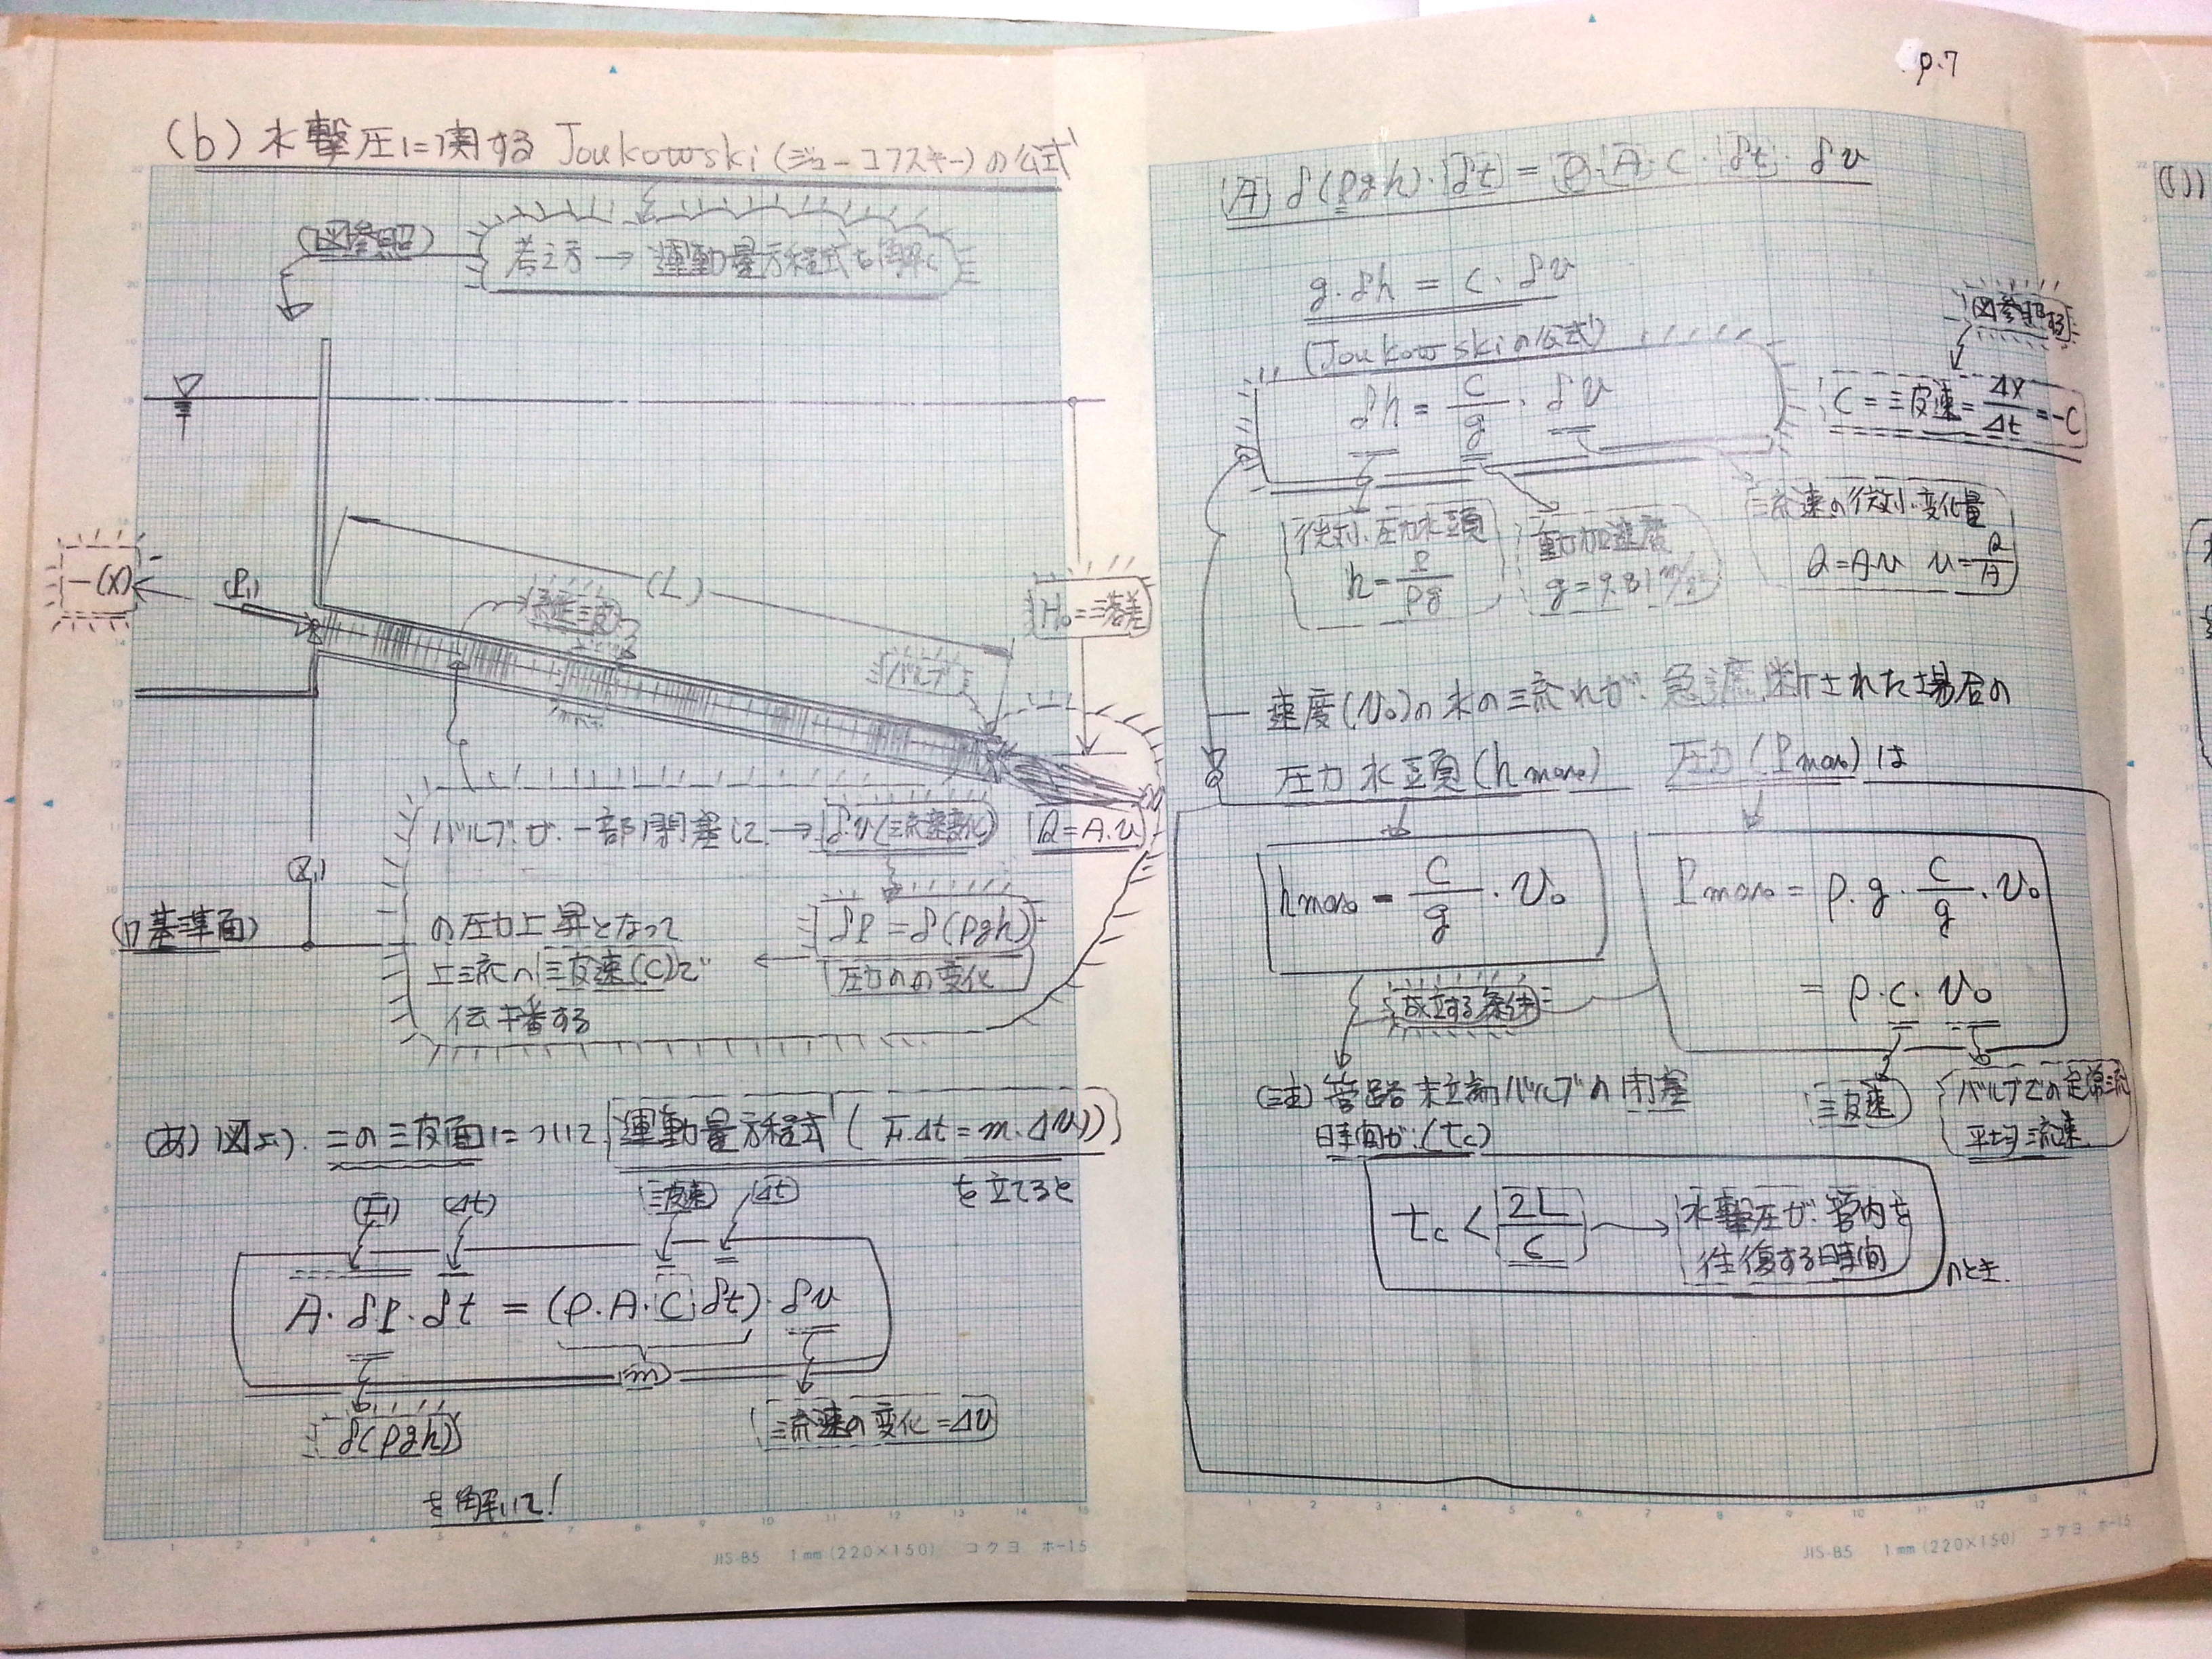 (b) 水撃圧に関する Joukowski (ジューコフスキー) の公式
(図参照)
考え方 → 運動量方程式を解く
-(x)
(P₁)
(L)
バルブ
H₀=落差
バルブが一部閉塞し → δv (流速変化)
Q=A.v
の圧力上昇となって
上流へ波速(C)で
伝播する
δP = δ(ρgh)
圧力の変化
(Z₁)
基準面
(あ) 図より、この波面について、運動量方程式 (F.Δt=m.Δv)
を立てると
(F) (Δt) 波速 (Δt)
A・δP・δt = (ρ.A.C.δt)・δv
(m)
δ(ρgh)
流速の変化=Δv
を解いて!
p.7
A δ(ρgh)・δt = ρ・A・C・δt・δv
g.δh = C・δv
(Joukowskiの公式)
δh = C/g・δv
図参照
C=波速=Δx/Δt=-C
微小圧力水頭
h=P/ρg
重力加速度
g=9.81 m/s²
流速の微小変化量
Q=A.v v=Q/A
速度(v₀)の水の流れが、急遮断された場合の
圧力水頭(hmax) 圧力(Pmax)は
hmax = C/g・v₀
Pmax = ρ.g.C/g.v₀
= ρ.C.v₀
成立する条件
波速
バルブでの定常流
平均流速
(注) 管路末端バルブの閉塞
時間が、(tc)
tc < 2L/C → 水撃圧が、管内を
往復する時間
のとき.
JIS-B5 1mm(220×150) コクヨ ホ-15
JIS-B5 1mm(220×150) コクヨ ホ-15